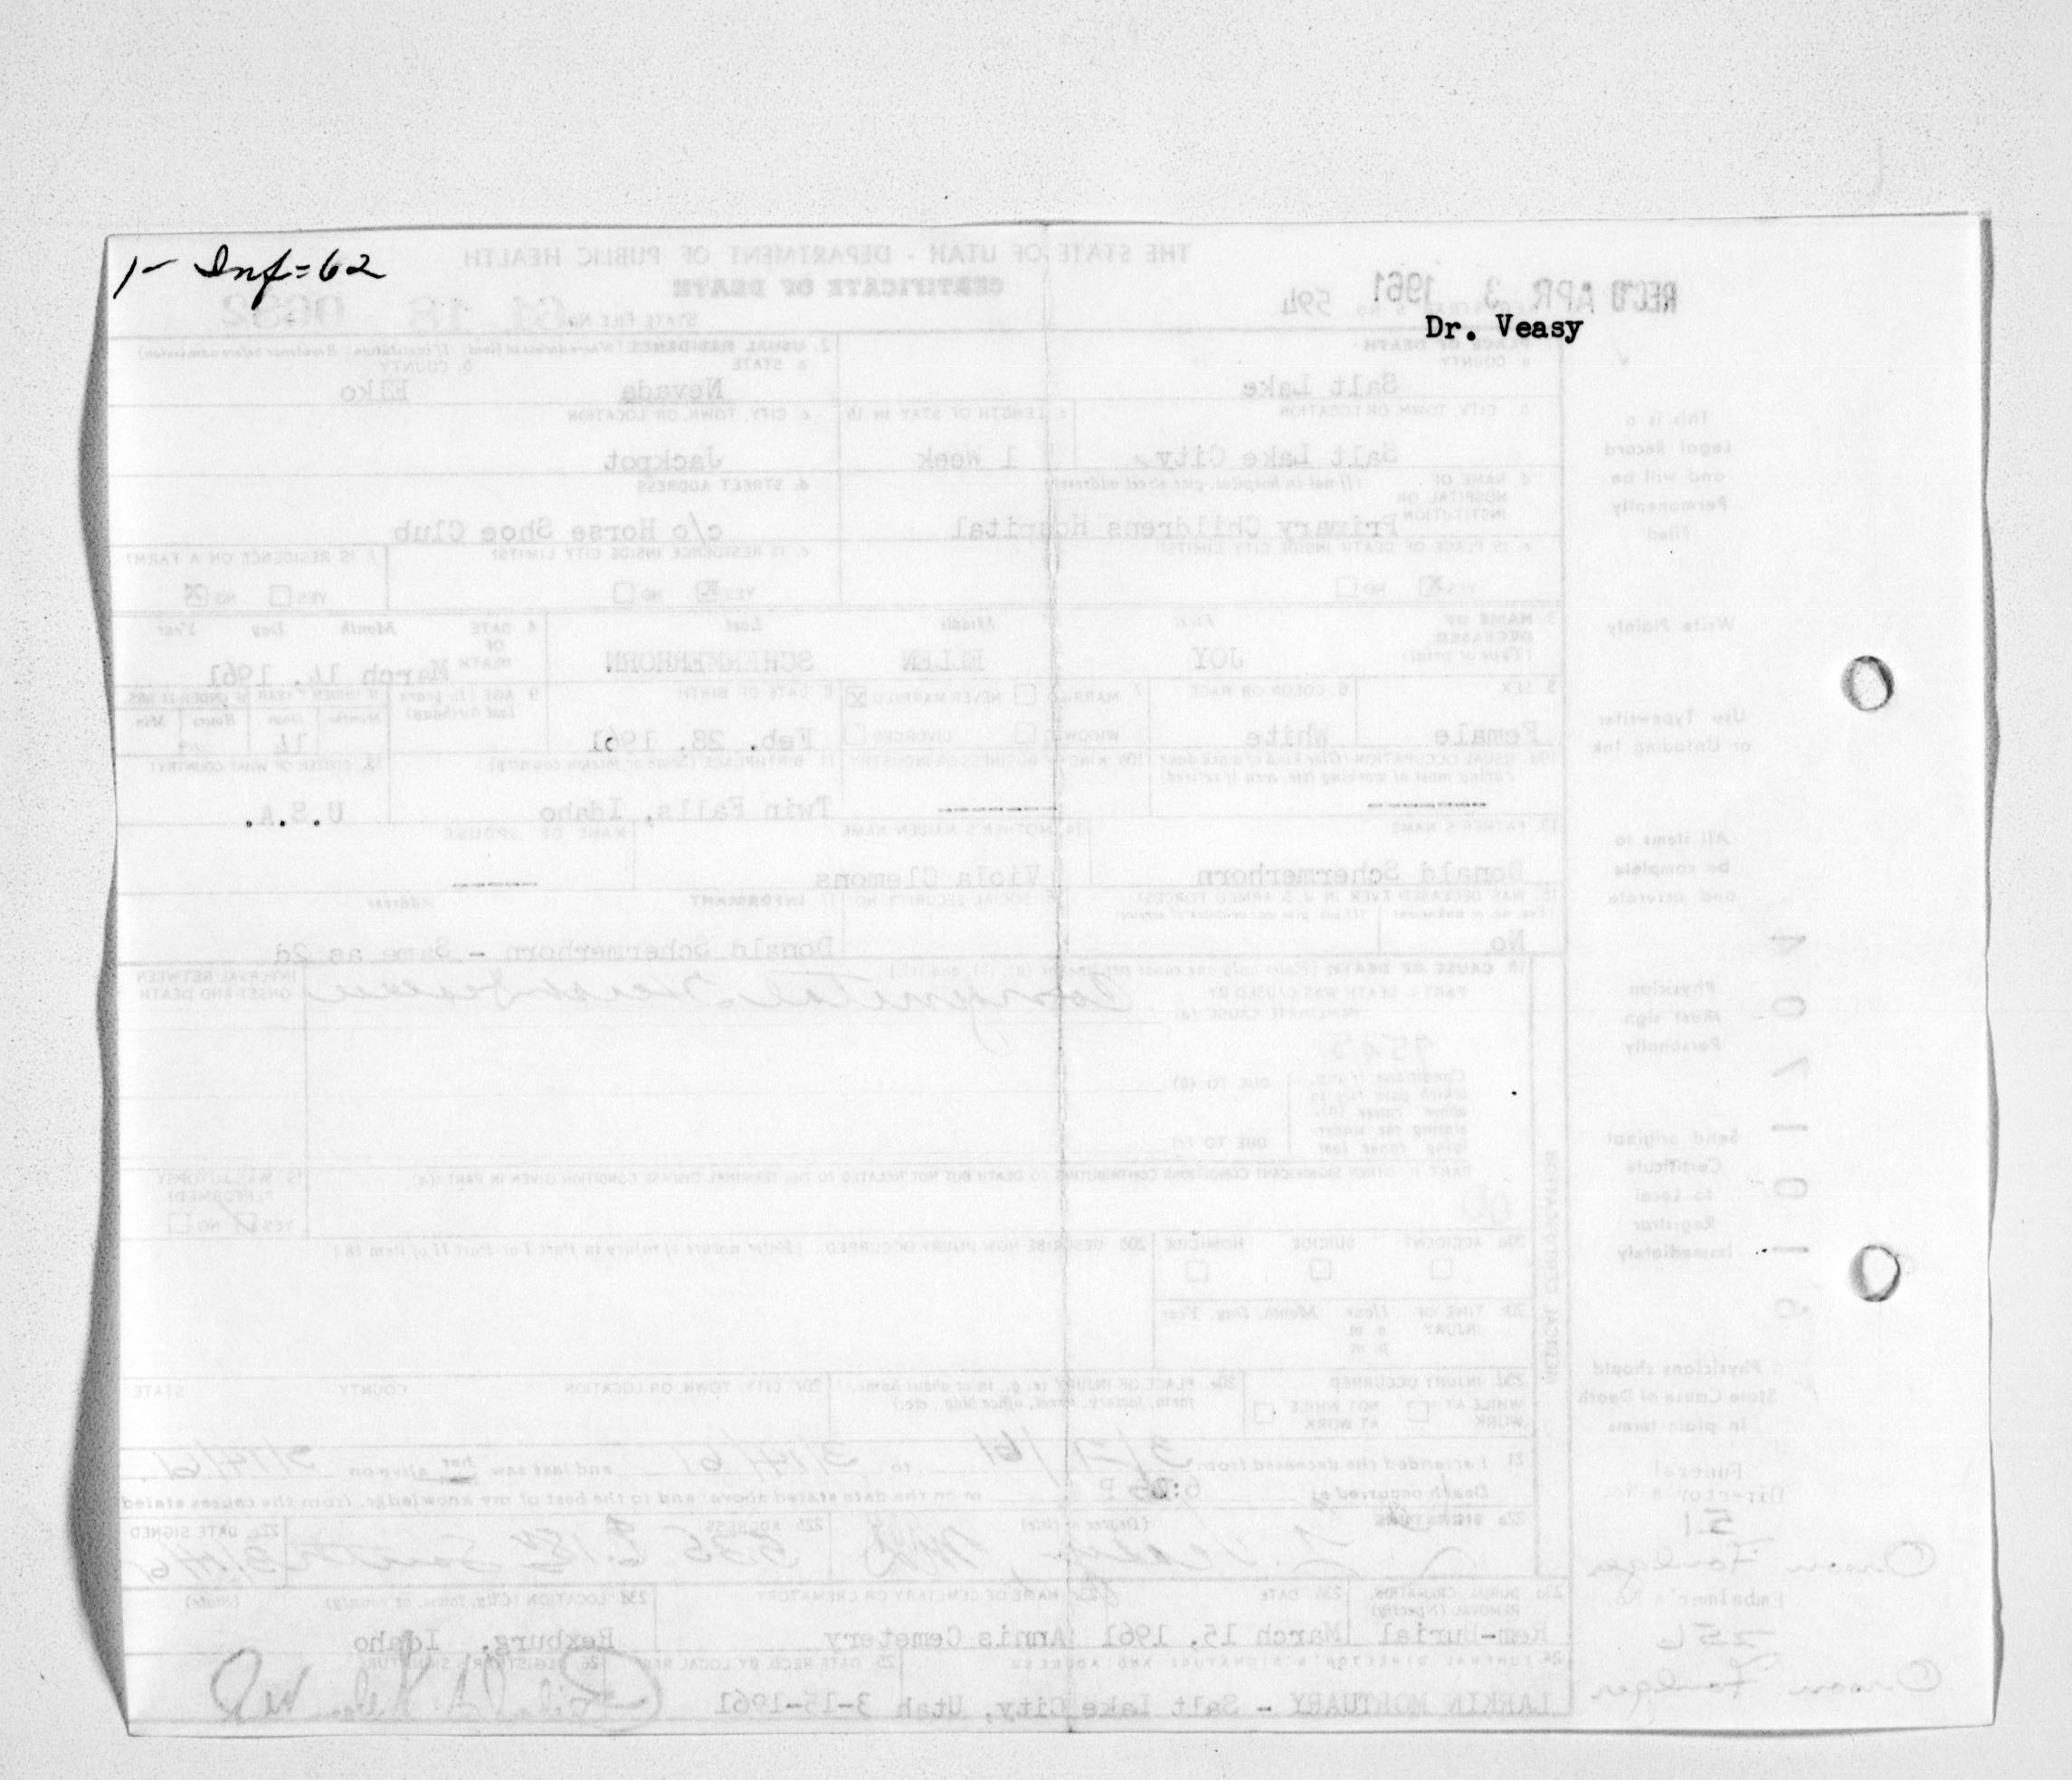 1- Inf=62
Dr. Veasy
THE STATE OF UTAH - DEPARTMENT OF PUBLIC HEALTH
CERTIFICATE OF DEATH
REC'D APR 3 1961
594
STATE FILE No. 61 18 0682
PLACE OF DEATH
a. COUNTY
Salt Lake
2. USUAL RESIDENCE
a. STATE
Nevada
b. COUNTY
Elko
b. CITY, TOWN, OR LOCATION
Salt Lake City
c. LENGTH OF STAY IN 1b
1 Week
c. CITY, TOWN, OR LOCATION
Jackpot
d. NAME OF HOSPITAL OR INSTITUTION
(If not in hospital, give street address)
Primary Childrens Hospital
d. STREET ADDRESS
c/o Horse Shoe Club
e. IS PLACE OF DEATH INSIDE CITY LIMITS?
YES NO
e. IS RESIDENCE INSIDE CITY LIMITS?
YES NO
f. IS RESIDENCE ON A FARM?
YES NO
3. NAME OF DECEASED
(Type or print)
First Middle Last
JOY ELLEN SCHERMERHORN
4. DATE OF DEATH
Month Day Year
March 14, 1961
5. SEX
Female
6. COLOR OR RACE
White
7. MARRIED NEVER MARRIED
WIDOWED DIVORCED
8. DATE OF BIRTH
Feb. 28, 1961
9. AGE (In years last birthday)
Months Days Hours Min.
14
11. BIRTHPLACE (State or foreign country)
Twin Falls, Idaho
12. CITIZEN OF WHAT COUNTRY?
U.S.A.
13. FATHER'S NAME
Donald Schermerhorn
14. MOTHER'S MAIDEN NAME
Viola Clemons
NAME OF SPOUSE
15. WAS DECEASED EVER IN U.S. ARMED FORCES?
No
16. SOCIAL SECURITY NO.
17. INFORMANT Address
Donald Schermerhorn - Same as 2d
18. CAUSE OF DEATH
PART I. DEATH WAS CAUSED BY
IMMEDIATE CAUSE (a)
Congenital Heart Disease
INTERVAL BETWEEN ONSET AND DEATH
DUE TO (b)
DUE TO (c)
PART II. OTHER SIGNIFICANT CONDITIONS CONTRIBUTING TO DEATH BUT NOT RELATED TO THE TERMINAL DISEASE CONDITION GIVEN IN PART I(a)
19. WAS AUTOPSY PERFORMED?
YES NO
20a. ACCIDENT SUICIDE HOMICIDE
20b. DESCRIBE HOW INJURY OCCURRED. (Enter nature of injury in Part I or Part II of item 18.)
20c. TIME OF INJURY
Hour Month, Day, Year
a.m.
p.m.
20d. INJURY OCCURRED
WHILE AT WORK NOT WHILE AT WORK
20e. PLACE OF INJURY (e. g., in or about home, farm, factory, street, office bldg., etc.)
20f. CITY, TOWN, OR LOCATION COUNTY STATE
21. I attended the deceased from 3/7/61 to 3/14/61 and last saw her alive on 3/14/61.
Death occurred at P m on the date stated above; and to the best of my knowledge, from the causes stated
22a. SIGNATURE (Degree or title)
22b. ADDRESS
22c. DATE SIGNED
23a. BURIAL, CREMATION, REMOVAL (Specify)
Rem-Burial
23b. DATE
March 15, 1961
23c. NAME OF CEMETERY OR CREMATORY
Annis Cemetery
23d. LOCATION (City, town, or county) (State)
Rexburg, Idaho
24. FUNERAL DIRECTOR'S SIGNATURE AND ADDRESS
LARKIN MORTUARY - Salt Lake City, Utah
25. DATE REC'D BY LOCAL REG.
3-15-1961
26. REGISTRAR'S SIGNATURE
This is a
Legal Record
and will be
Permanently
Filed
Write Plainly
Use Typewriter
or Unfading Ink
All items to
be complete
and accurate
Physician
Must sign
Personally
Send original
Certificate
to Local
Registrar
Immediately
Physicians should
State Cause of Death
in plain terms
Funeral
Director's No.
51
Embalmer's No.